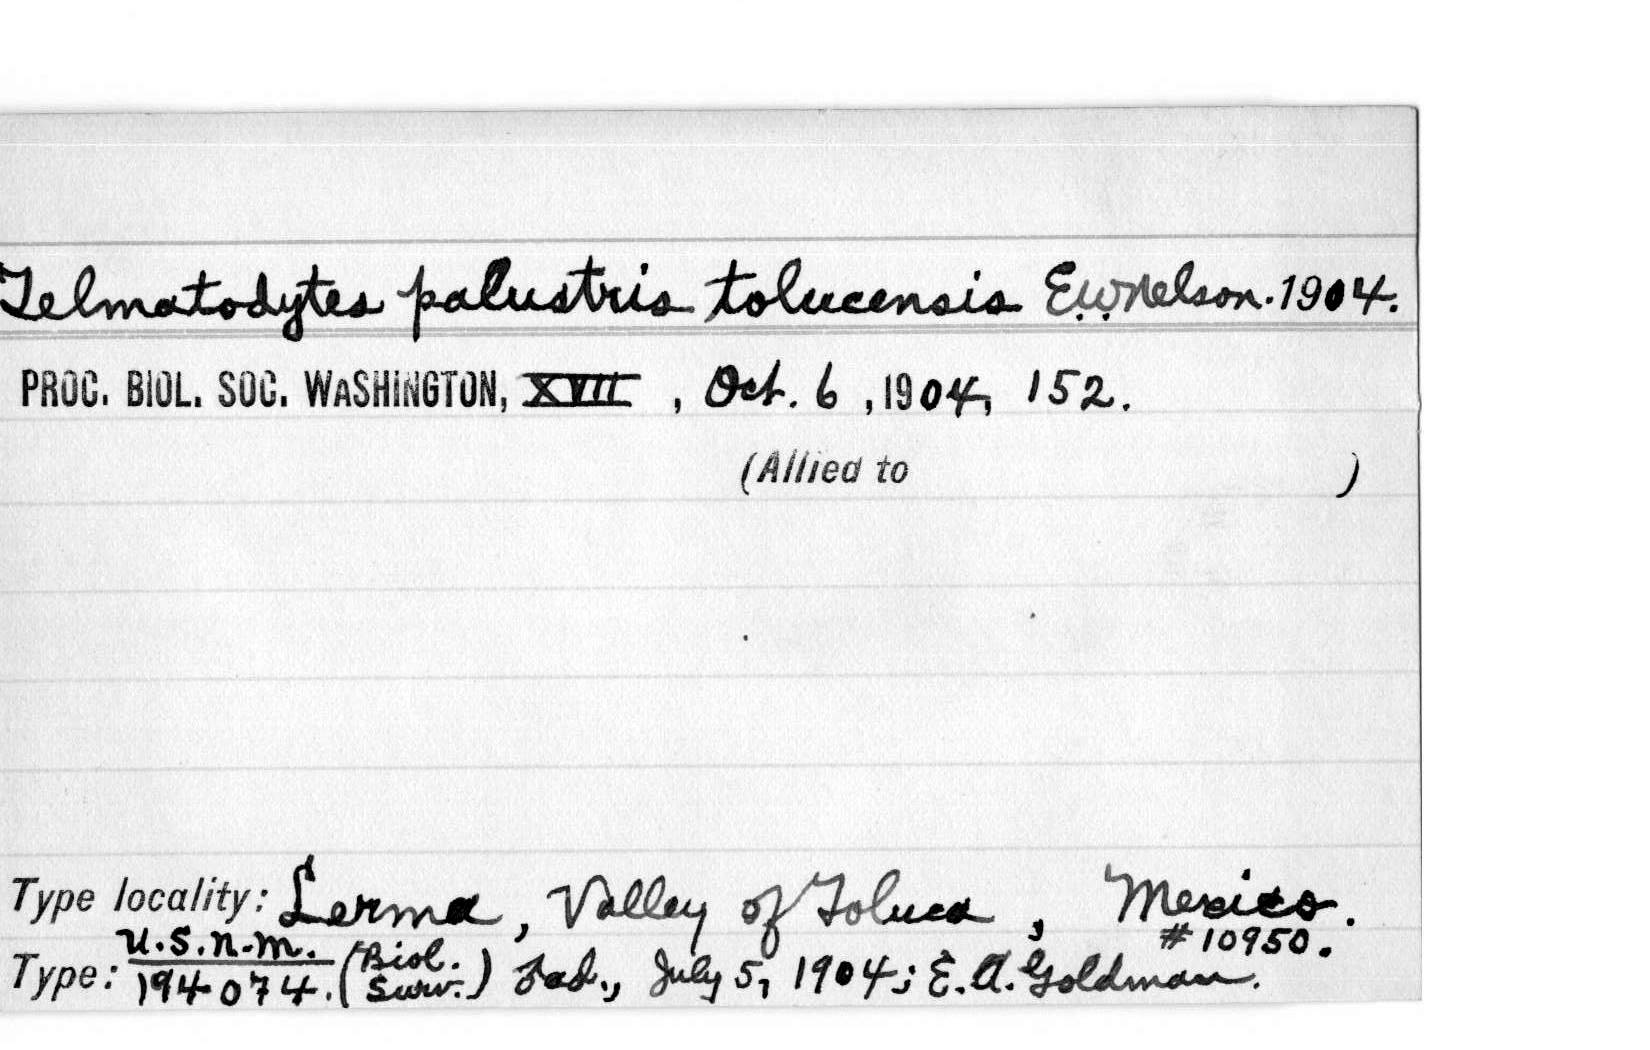 Telmatodytes palustris tolucensis E.W. Nelson. 1904.
PROC. BIOL. SOC. WASHINGTON, XVII, Oct. 6, 1904, 152.
(Allied to )
Type locality: Lerma, Valley of Toluca, Mexico.
U.S.N.M. #10950.
Type: 194074. (Biol. Surv.) Ɨad., July 5, 1904; E.A. Goldman.